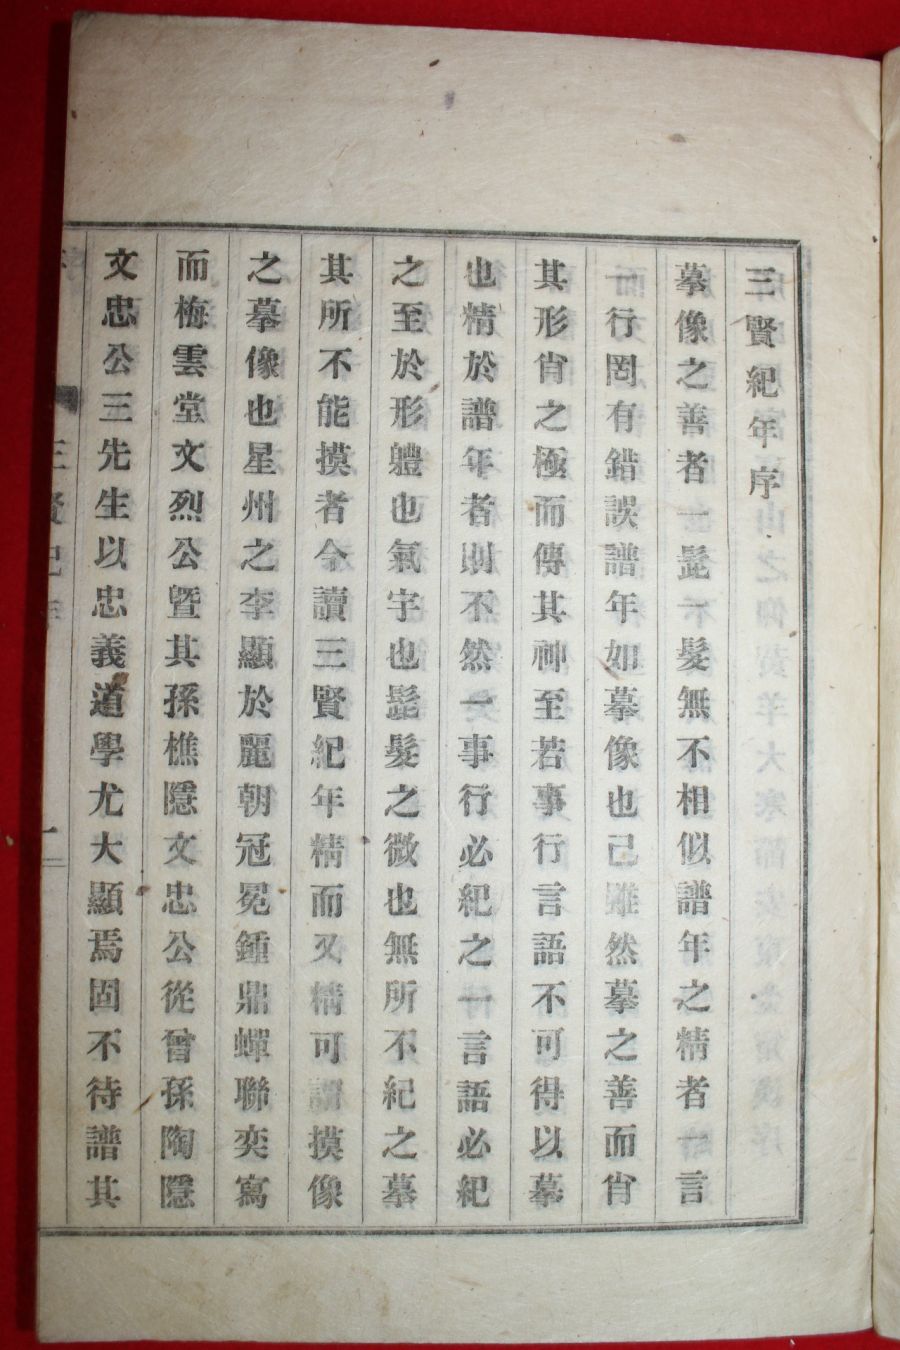 三賢紀年序
摹像之善者一髭一髮無不相似譜年之精者一言
一行罔有錯誤譜年如摹像也已雖然摹之善而肖
其形肖之極而傳其神至若事行言語不可得以摹
也精於譜年者則不然一事行必紀之一言語必紀
之至於形軆也氣宇也髭髮之微也無所不紀之摹
其所不能摸者今讀三賢紀年精而又精可謂摸像
之摹像也星州之李顯於麗朝冠冕鍾鼎蟬聯奕寫
而梅雲堂文烈公曁其孫樵隱文忠公從曾孫陶隱
文忠公三先生以忠義道學尤大顯焉固不待譜其
三賢紀年